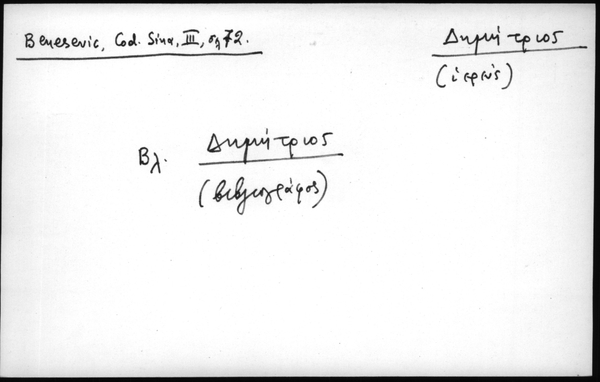 Benesevic, Cod. Sina, III, σλ 72.
Δημήτριος
(ἱερεύς)
Βλ. Δημήτριος
(βιβλιογράφος)